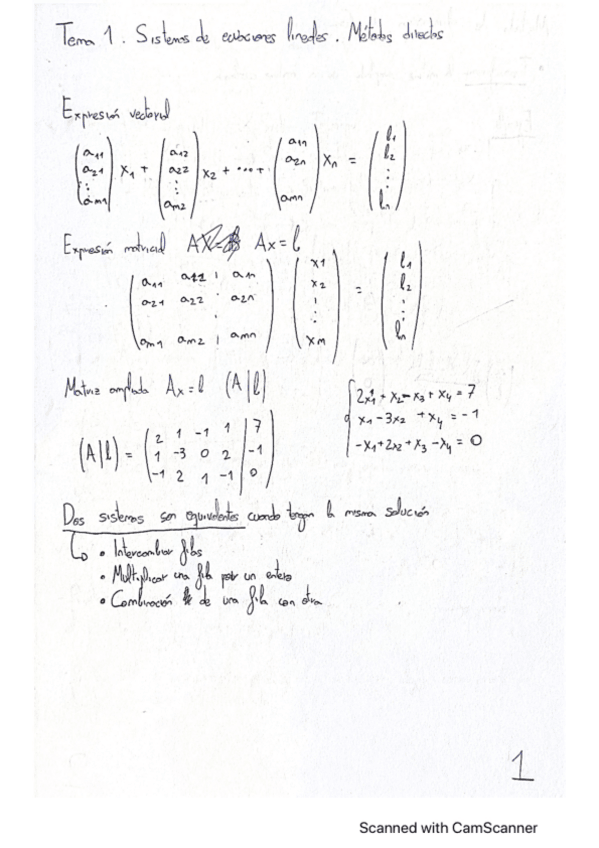 Tema 1. Sistemas de ecuaciones lineales. Métodos directos
Expresión vectorial
(a11 a21 ⋮ am1) x1 + (a12 a22 ⋮ am2) x2 + ... + (a1n a2n amn) xn = (b1 b2 ⋮ bn)
Expresión matricial Ax = b
a11 a12 ⋮ a1n x1 b1
a21 a22 a2n x2 = b2
⋮ ⋮ ⋮
am1 am2 ⋮ amn xm bn
Matriz ampliada Ax = b (A|b)
2x1 + x2 - x3 + x4 = 7
x1 - 3x2 + x4 = -1
-x1 + 2x2 + x3 - x4 = 0
(A|b) =
2 1 -1 1 | 7
1 -3 0 2 | -1
-1 2 1 -1 | 0
Dos sistemas son equivalentes cuando tengan la misma solución
↳ • Intercambiar filas
• Multiplicar una fila por un entero
• Combinación de una fila con otra
1
Scanned with CamScanner